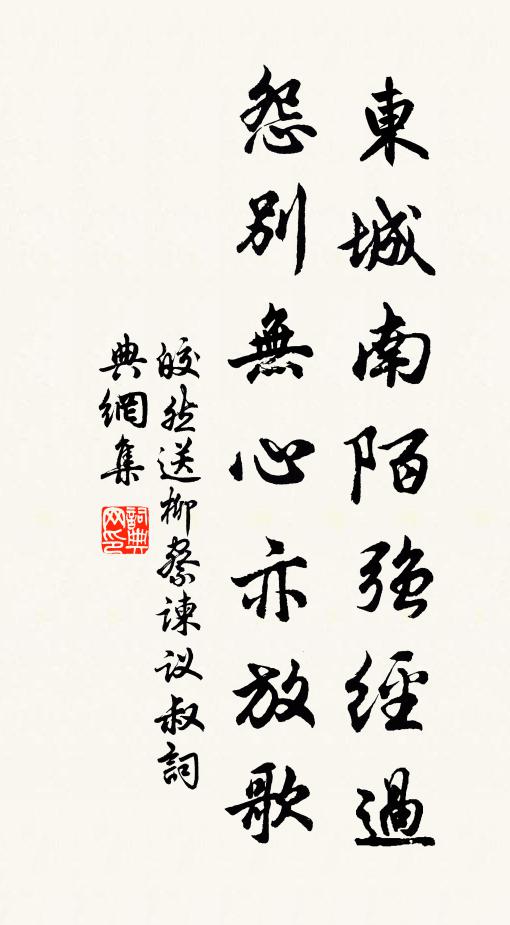 東城南陌強經過
怨別無心亦放歌
皎然送柳察諫议叔詞
典網集
詞典网印